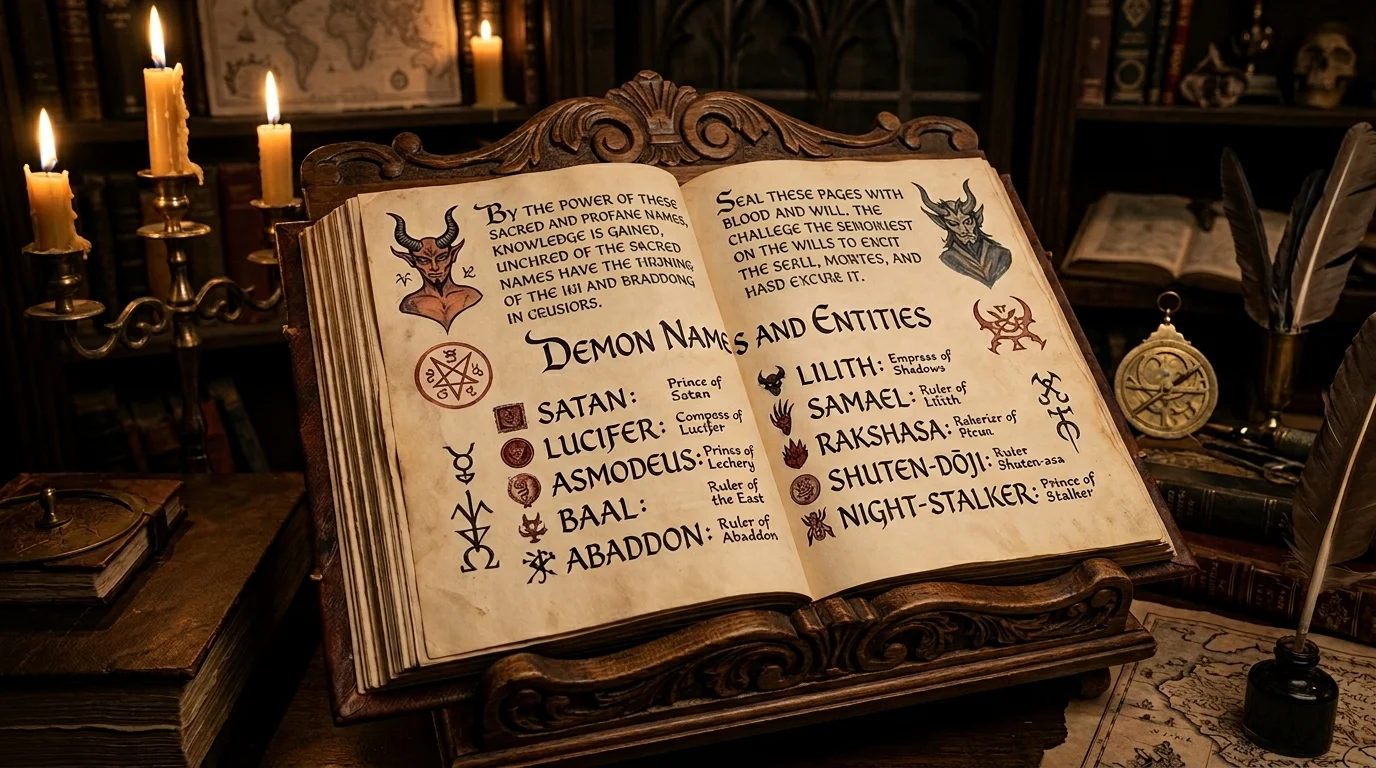 BY THE POWER OF THESE
SACRED AND PROFANE NAMES,
KNOWLEDGE IS GAINED,
UNCHRED OF THE SACRED
NAMES HAVE THE
OF THE AND BRADDONG
IN
SEAL THESE PAGES WITH
BLOOD AND WILL. THE
CHALLEGE THE
ON THE WILLS TO ENCIT
THE SERLL, MORTES, AND
HASD EXCURE IT.
DEMON NAMES AND ENTITIES
SATAN: Prince of
Satan
LUCIFER: Compass of
Lucifer
ASMODEUS: Prins of
Lechery
BAAL: Ruler of
the East
ABADDON: Ruler of
Abaddon
LILITH: Empress of
Shadows
SAMAEL: Ruler of
Lilith
RAKSHASA: of
SHUTEN-DŌJI: Ruler
Shuten-asa
NIGHT-STALKER: Prince of
Stalker